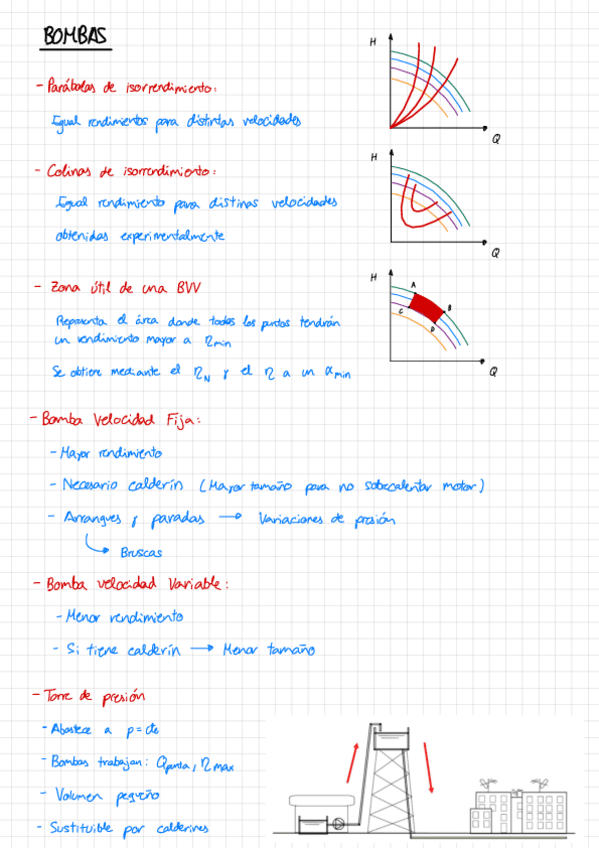 BOMBAS
- Parábolas de isorrendimiento:
Igual rendimientos para distintas velocidades
H
Q
- Colinas de isorrendimiento:
Igual rendimiento para distinas velocidades
obtenidas experimentalmente
H
Q
- Zona útil de una BVV
Representa el área donde todos los puntos tendrán
un rendimiento mayor a η min
Se obtiene mediante el η N y el η a un α min
H
A
B
C
D
Q
- Bomba Velocidad Fija:
- Mayor rendimiento
- Necesario calderín (Mayor tamaño para no sobrecalentar motor)
- Arranques y paradas → Variaciones de presión
Bruscas
- Bomba velocidad Variable:
- Menor rendimiento
- Si tiene calderín → Menor tamaño
- Torre de presión
- Abastece a p = cte
- Bombas trabajan: Qpunta, η max
- Volumen pequeño
- Sustituible por calderines